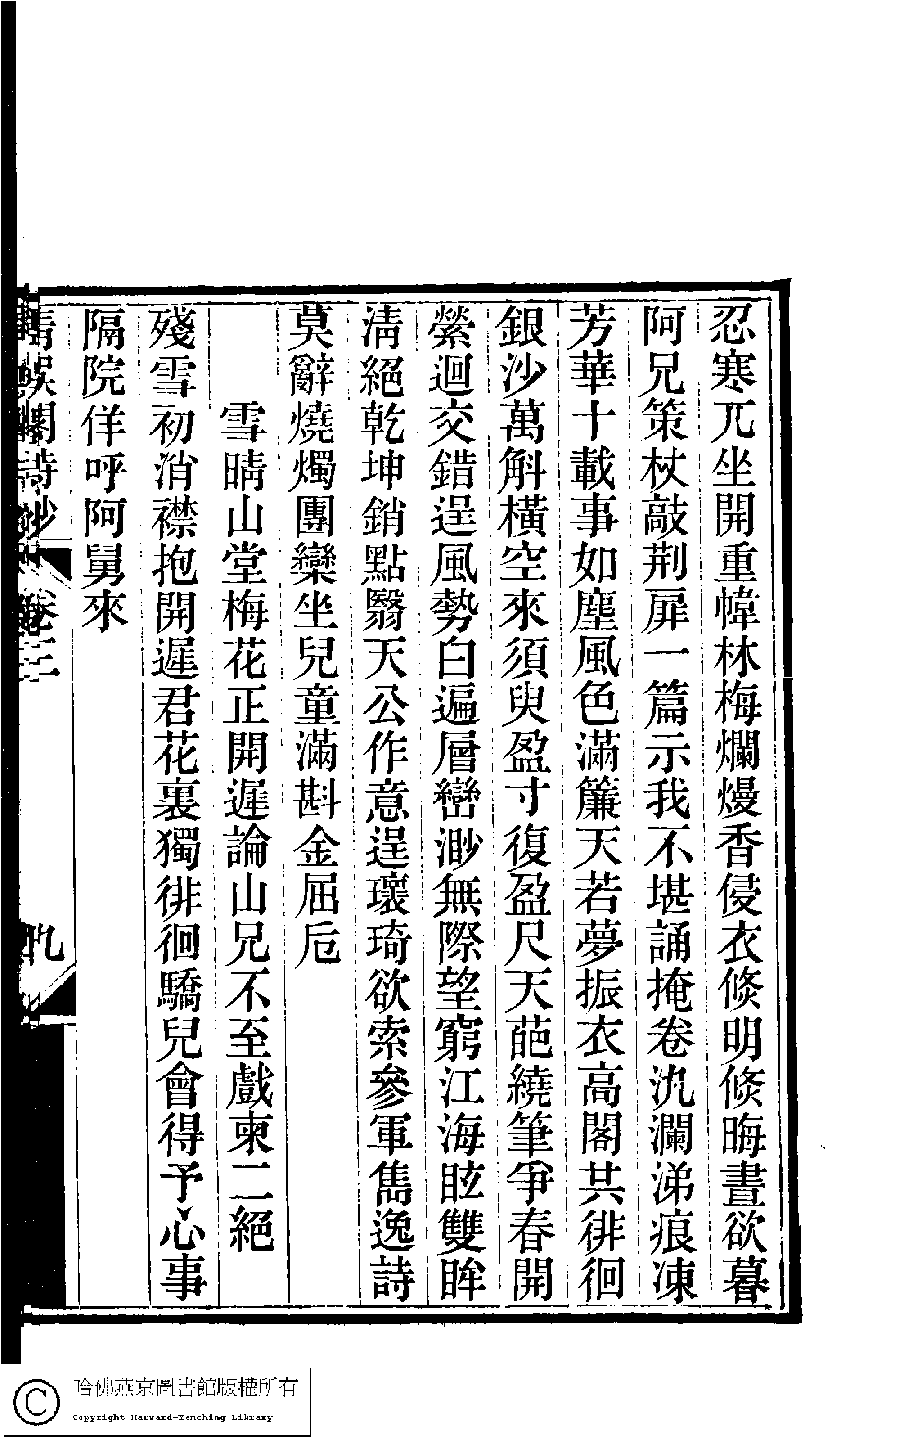 忍寒兀坐開重幃林梅爛熳香侵衣倐明倐晦晝欲暮
阿兄策杖敲荆扉一篇示我不堪誦掩卷汍瀾涕痕凍
芳華十載事如塵風色滿簾天若夢振衣高閣共徘徊
銀沙萬斛橫空來須臾盈寸復盈尺天葩繞筆爭春開
縈迴交錯逞風勢白遍層巒渺無際望窮江海眩雙眸
淸絕乾坤銷點翳天公作意逞瓌琦欲索參軍雋逸詩
莫辭燒燭團欒坐兒童滿斟金屈卮
雪晴山堂梅花正開遲論山兄不至戲柬二絕
殘雪初消襟抱開遲君花裏獨徘徊驕兒會得予心事
隔院佯呼阿舅來
閣詩鈔 卷三 九
哈佛燕京圖書館版權所有
Copyright Harvard-Yenching Library